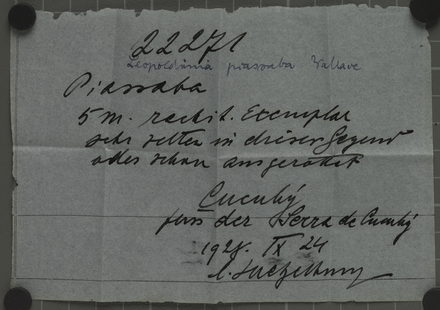 22271
Leopoldinia piassaba Wallace
Piassaba
5 m. Exemplar
sehr selten in dieser Gegend
oder schon ausgerottet
Cucuhý
fuss der Serra de Cucuhý
192 IX 24